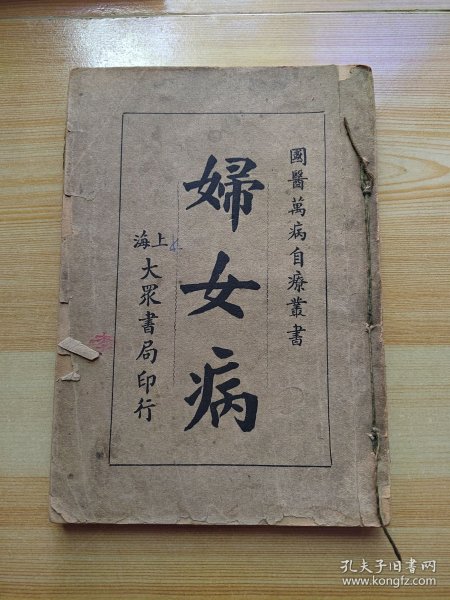 國醫萬病自療叢書
婦女病
上海
大眾書局印行
孔夫子旧书网
www.kongfz.com